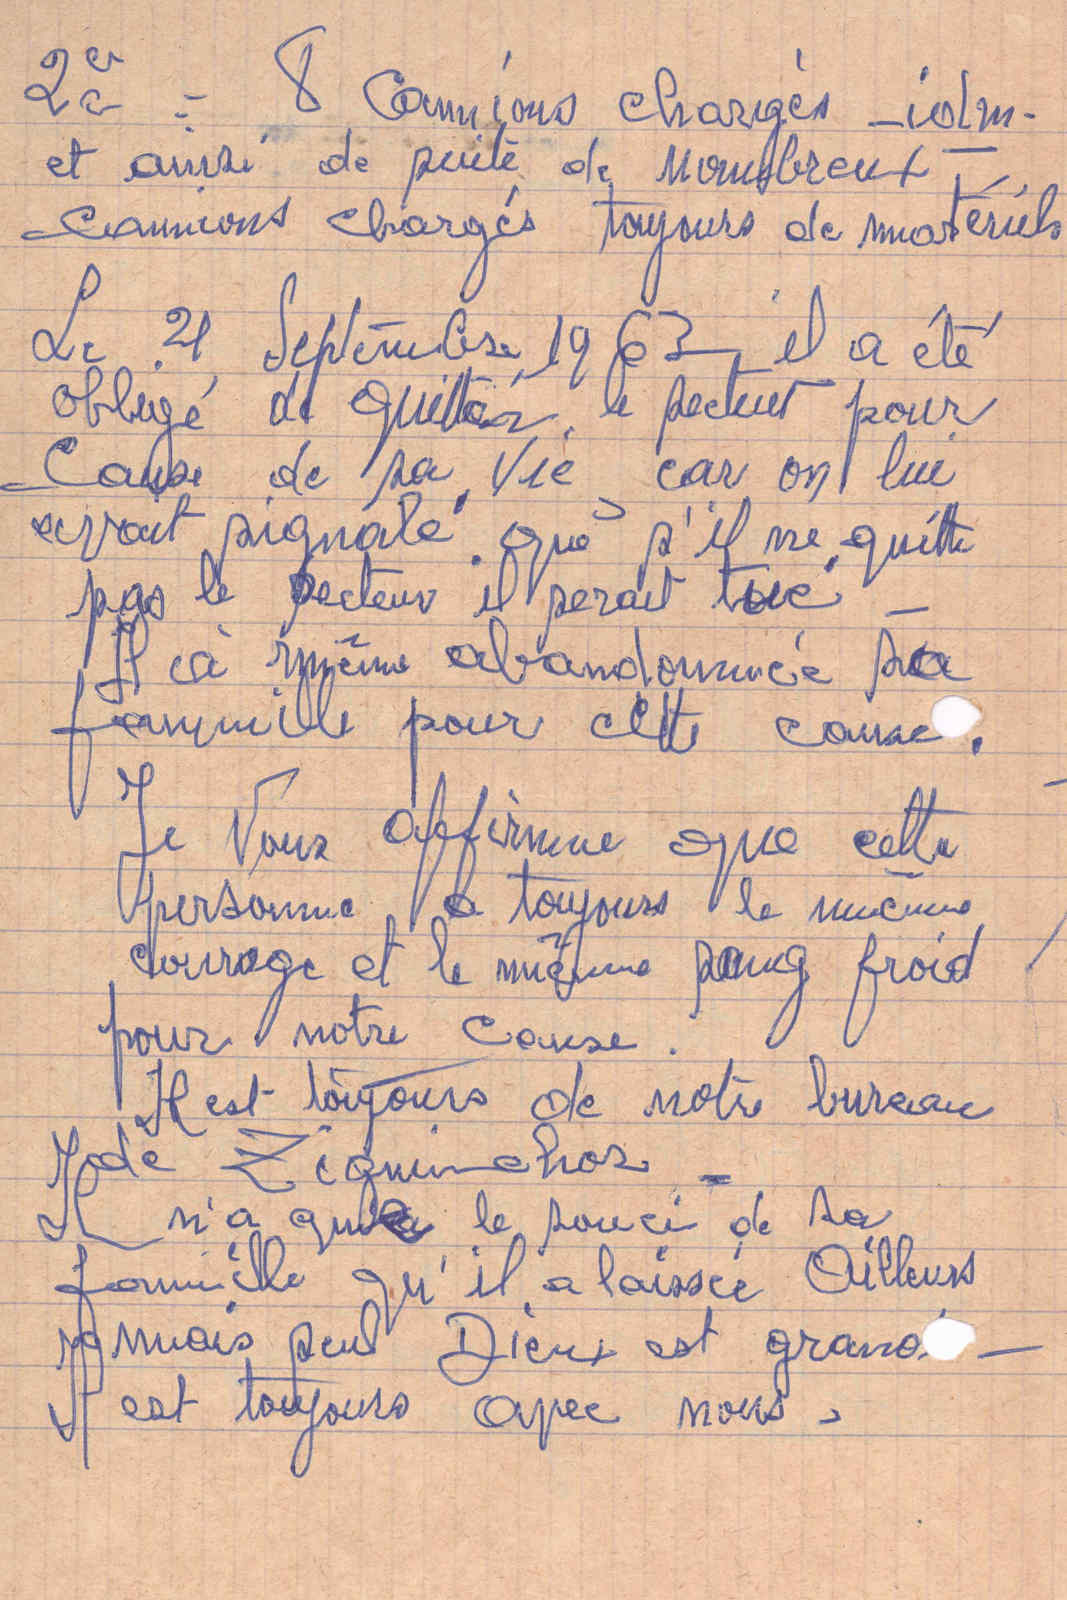 2è = 8 Camions chargés - idm -
et ainsi de suite de nombreux -
Camions chargés toujours de matériels
Le 21 Septembre 1963, il a été
obligé de quitter le secteur pour
Cause de sa vie car on lui
avait signalé que s'il ne quitte
pas le secteur il serait tué -
Il à même abandonnée sa
famille pour cette cause.
Je Vous affirme que cette
personne a toujours le même
courage et le même sang froid
pour notre cause.
Il est toujours de notre bureau
de Ziguinchor -
Il n'a que le souci de sa
famille qu'il a laissée Ailleurs
mais seul Dieu est grand -
Il est toujours avec nous.